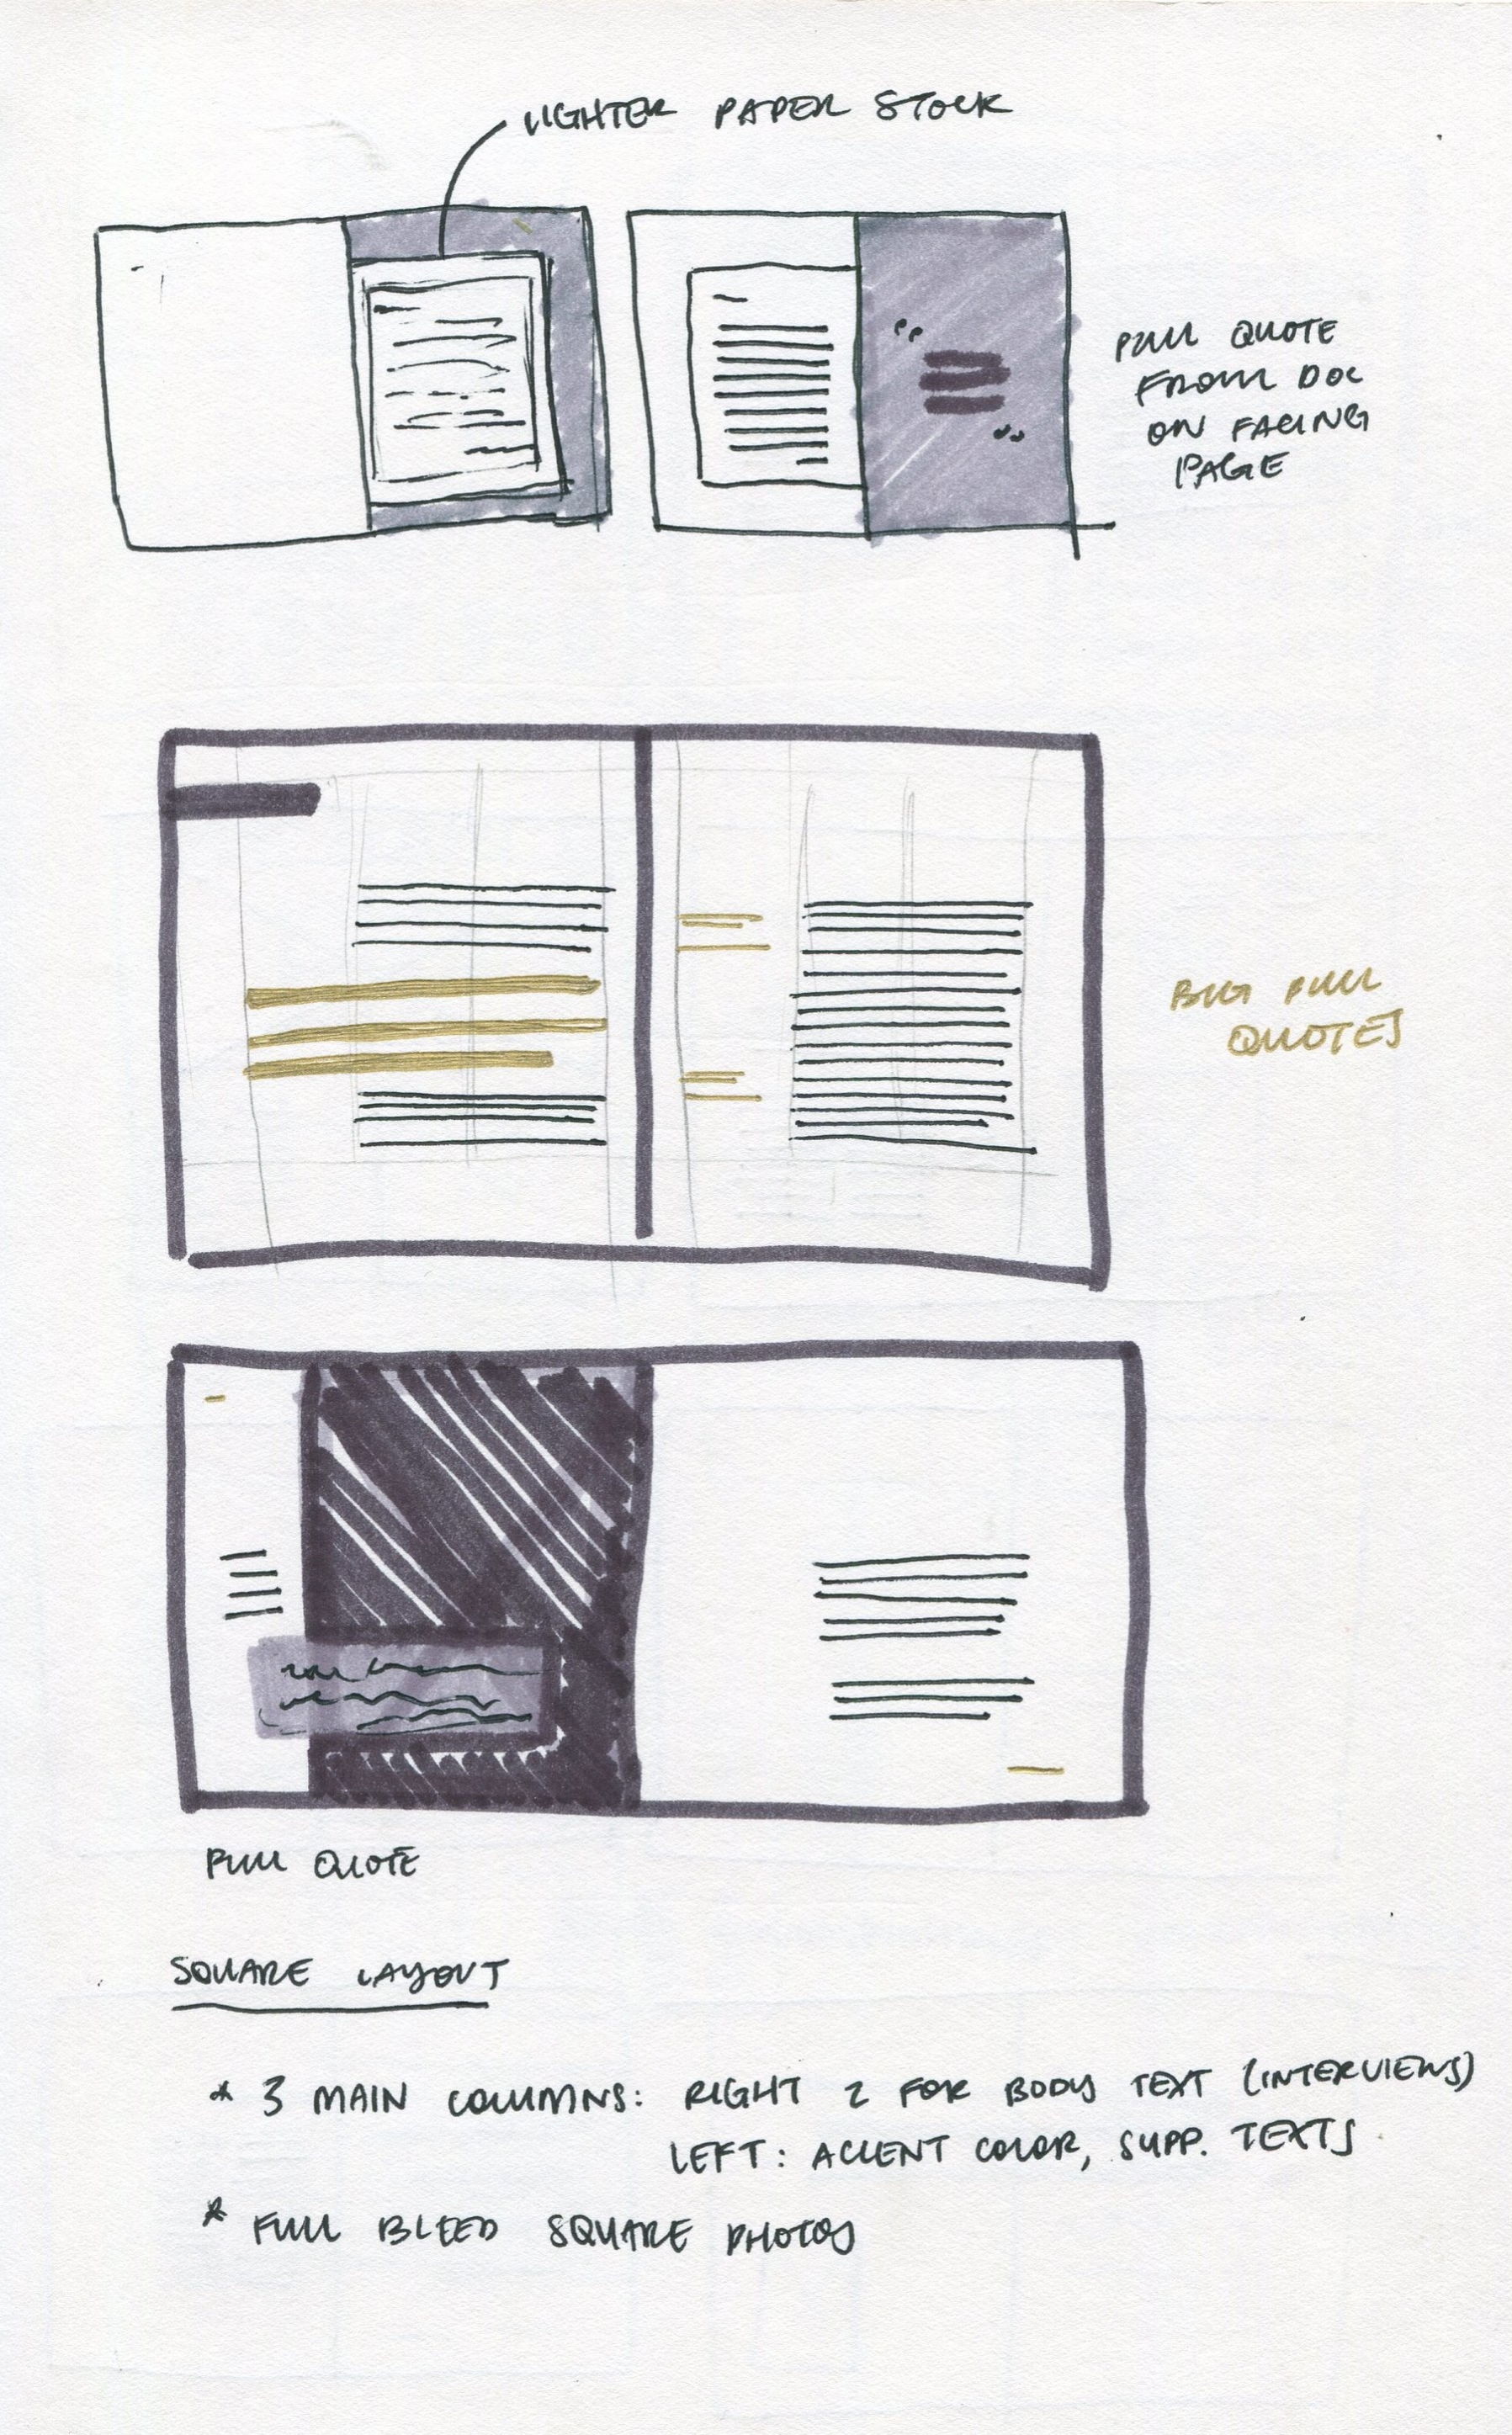 LIGHTER PAPER STOCK
PULL QUOTE
FROM DOC
ON FACING
PAGE
BIG PULL
QUOTES
PULL QUOTE
SQUARE LAYOUT
* 3 MAIN COLUMNS: RIGHT 2 FOR BODY TEXT (INTERVIEWS)
LEFT: ACCENT COLOR, SUPP. TEXTS
* FULL BLEED SQUARE PHOTOS